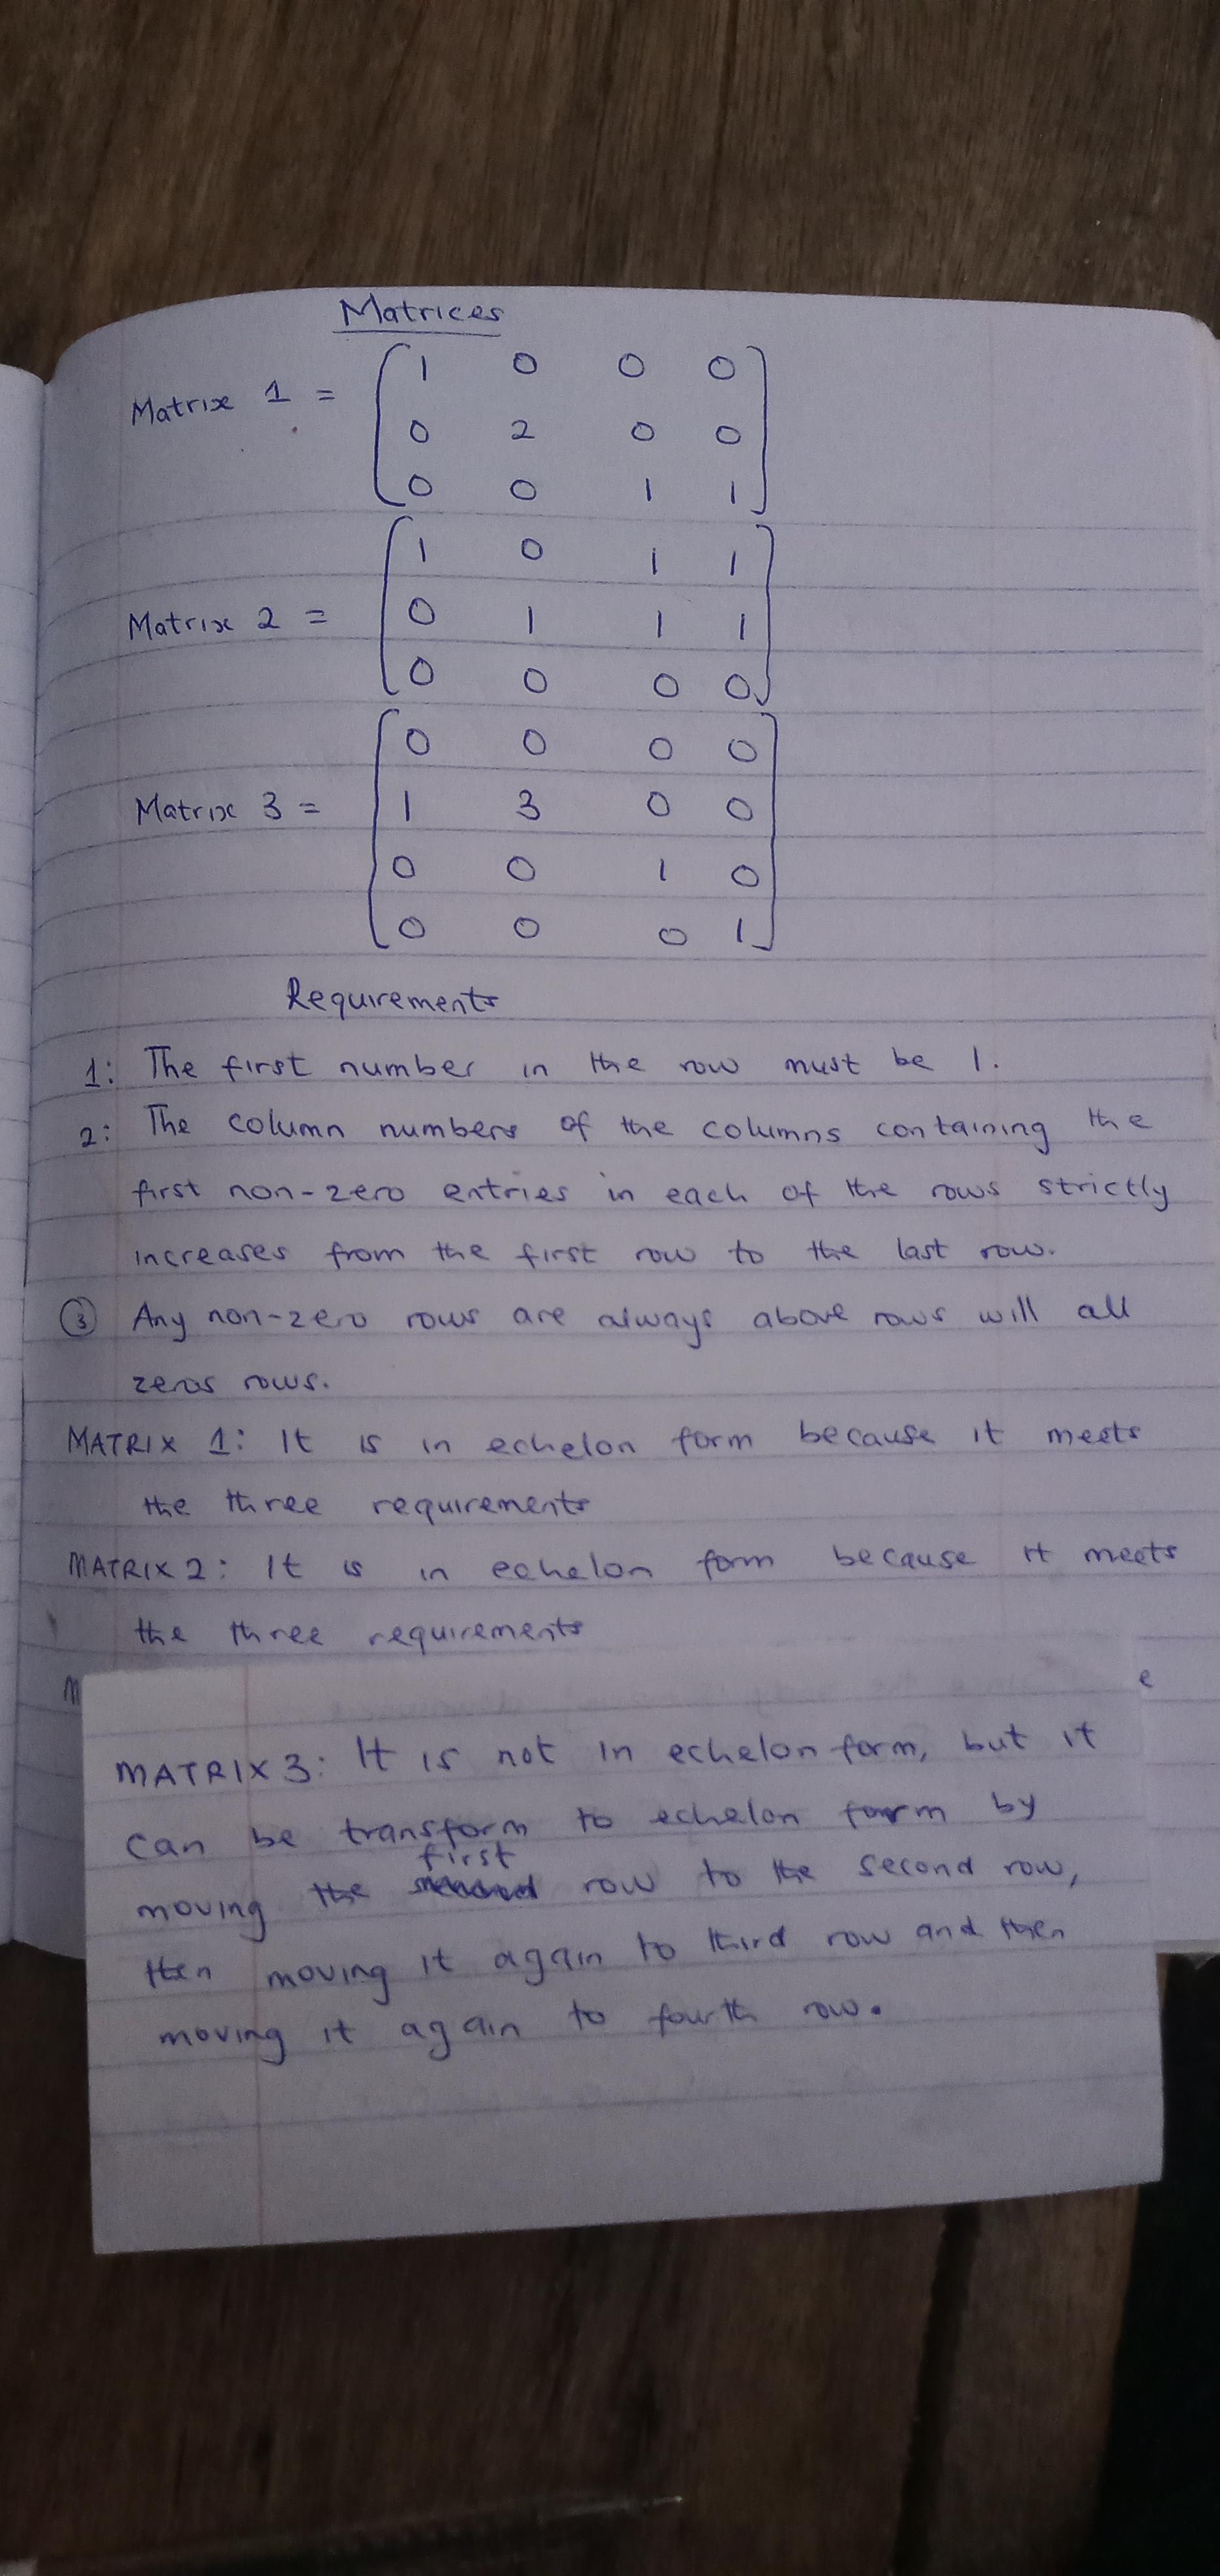 Matrices
Matrix 1 = [ 1 0 0 0
0 2 0 0
0 0 1 1 ]
Matrix 2 = [ 1 0 1 1
0 1 1 1
0 0 0 0 ]
Matrix 3 = [ 0 0 0 0
1 3 0 0
0 0 1 0
0 0 0 1 ]
Requirements
1: The first number in the row must be 1.
2: The column numbers of the columns containing the
first non-zero entries in each of the rows strictly
increases from the first row to the last row.
③ Any non-zero rows are always above rows will all
zeros rows.
MATRIX 1: It is in echelon form because it meets
the three requirements
MATRIX 2: It is in echelon form because it meets
the three requirements
M e
MATRIX 3: It is not in echelon form, but it
can be transform to echelon form by
first
moving the row to the second row,
then moving it again to third row and then
moving it again to fourth row.